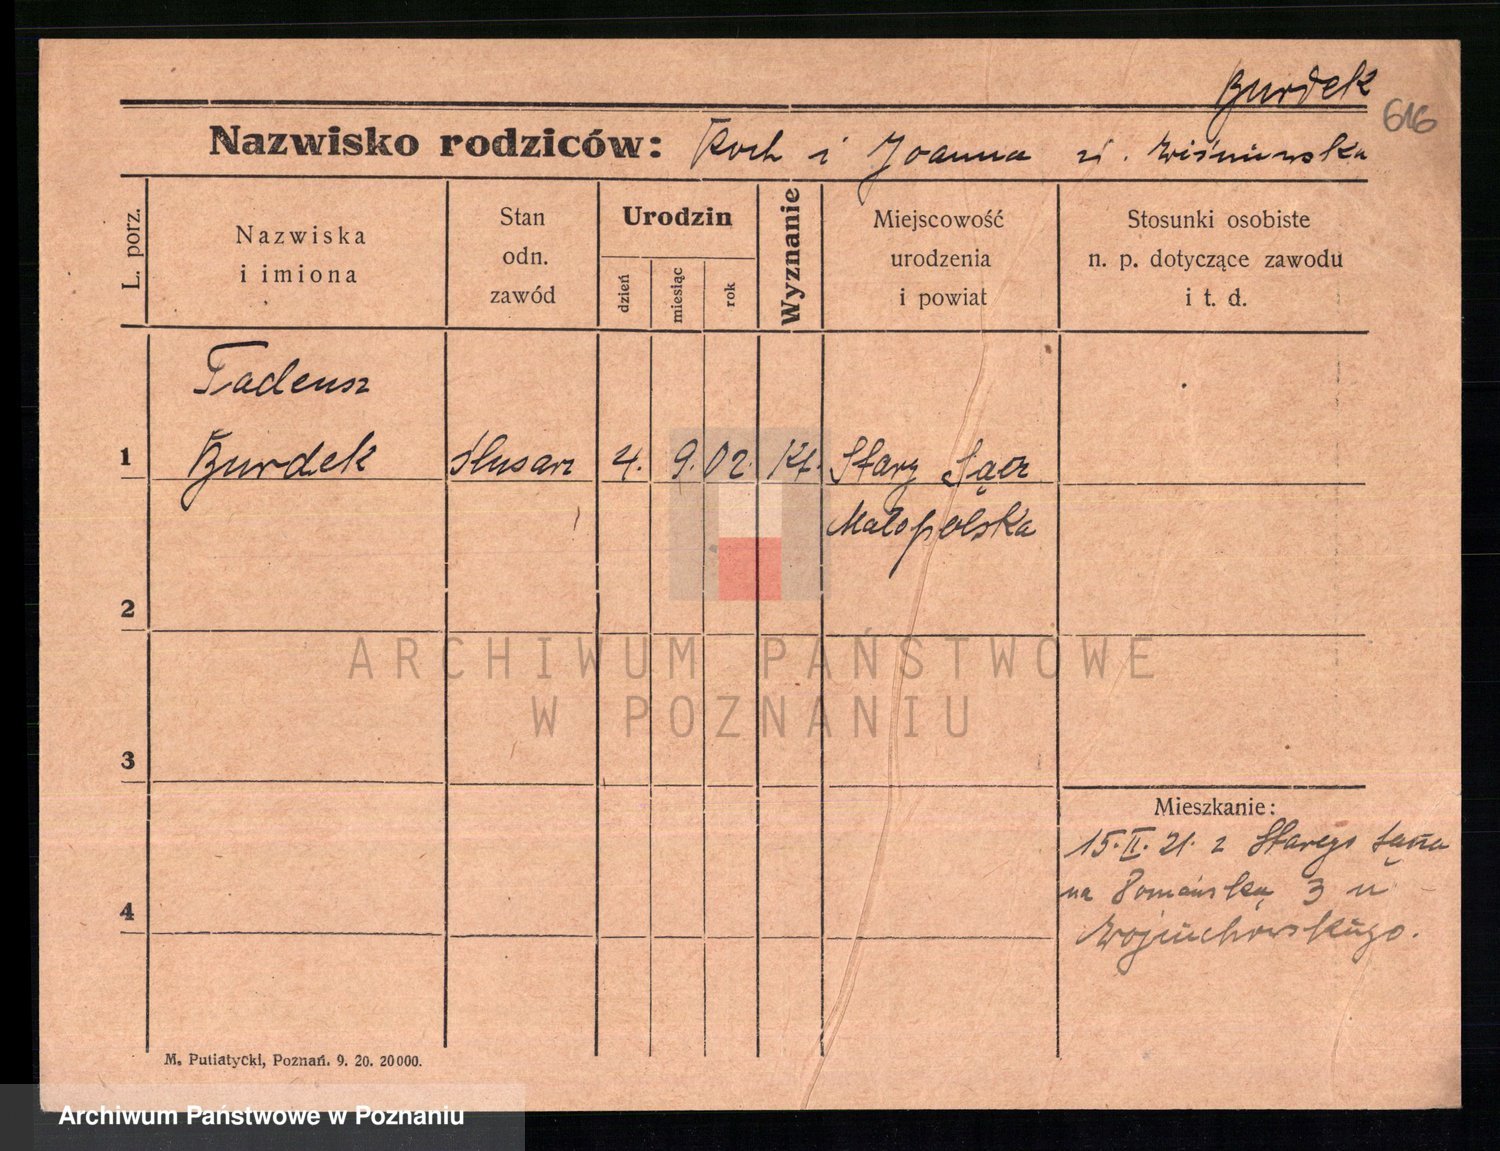 Burdek
616
Nazwisko rodziców: Roch i Joanna z d. Wiśniewska
L. porz.
Nazwiska
i imiona
Stan
odn.
zawód
Urodzin
dzień
miesiąc
rok
Wyznanie
Miejscowość
urodzenia
i powiat
Stosunki osobiste
n. p. dotyczące zawodu
i t. d.
Tadeusz
1 Burdek ślusarz 4. 9. 02. Kt. Stary Sącz
Małopolska
2
3
Mieszkanie:
15.II.21. z Starego Sącza
na 3 u
4
Wojciechowskiego.
M. Putiatycki, Poznań. 9. 20. 20000.
ARCHIWUM PAŃSTWOWE
W POZNANIU
Archiwum Państwowe w Poznaniu